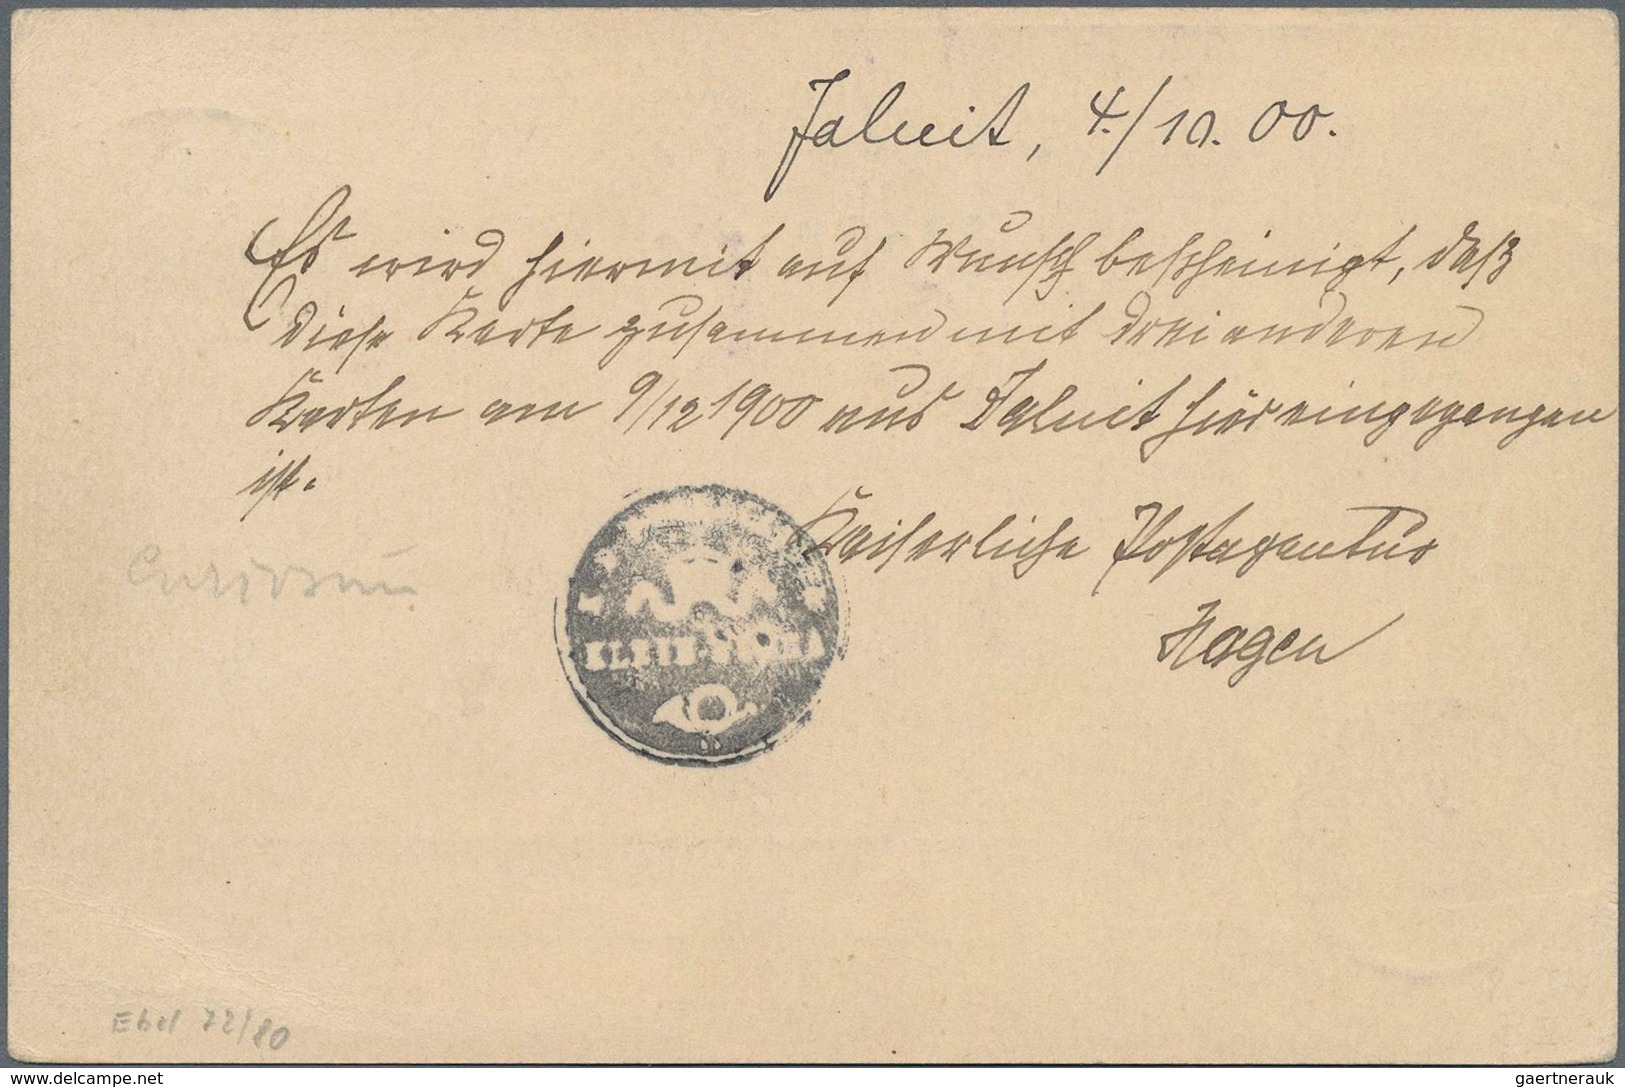 Jaluit, 4./10. 00.
Es wird hiermit auf Wunsch bescheinigt, daß
diese Karte zusammen mit drei anderen
Karten am 9/12 1900 aus Jaluit hier eingegangen
ist.
Kaiserliche Postagentur
Hagen
Curiosum
KLEIN-
Ebel 72/80
delcampe.net
gaertnerauk